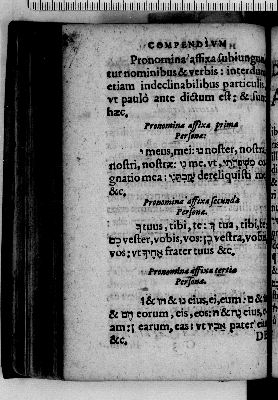 COMPENDIVM
Pronomina affixa subiungun
tur nominibus & verbis: interdum
etiam indeclinabilibus particulis,
vt paulò ante dictum est: & sunt
hæc.
Pronomina affixa prima
Personæ.
י meus, mei: נו noster, nostri,
nostri, nostræ: ני me. vt,
gnatio mea: dereliquisti me
&c.
Pronomina affixa secunda
Personæ.
ך tuus, tibi, te: ך tua, tibi, te:
כם vester, vobis, vos: כן vestra, vobis,
vos: vt אחיך frater tuus &c.
Pronomina affixa tertia
Personæ.
ו & הו & eius, ei, eum: ם &
& eorum, eis, eos: ה & eius,
am: ן earum, eas: vt אביו pater eius
&c.